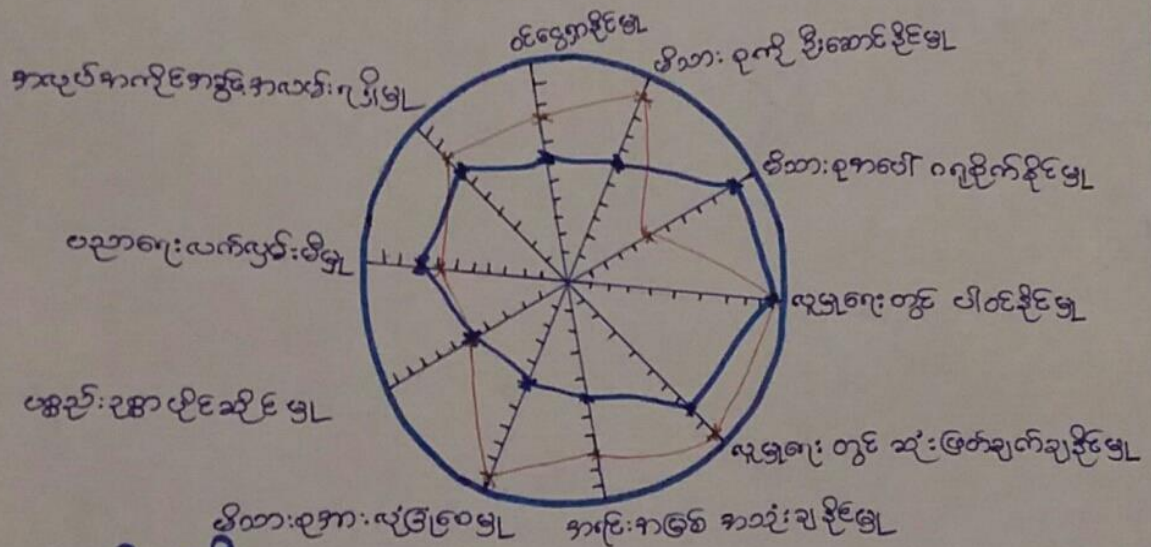 ဝင်ငွေရှာနိုင်မှု
မိသားစုကို ဦးဆောင်နိုင်မှု
မိသားစုအပေါ် ဂရုစိုက်နိုင်မှု
လူမှုရေးတွင် ပါဝင်နိုင်မှု
လူမှုရေးတွင် ဆုံးဖြတ်ချက်ချနိုင်မှု
အရင်းအမြစ် အသုံးချနိုင်မှု
မိသားစုအား လုံခြုံစေမှု
ပစ္စည်းဥစ္စာ ပိုင်ဆိုင်မှု
ပညာရေးလက်လှမ်းမီမှု
အလုပ်အကိုင်အခွင့်အလမ်းရရှိမှု